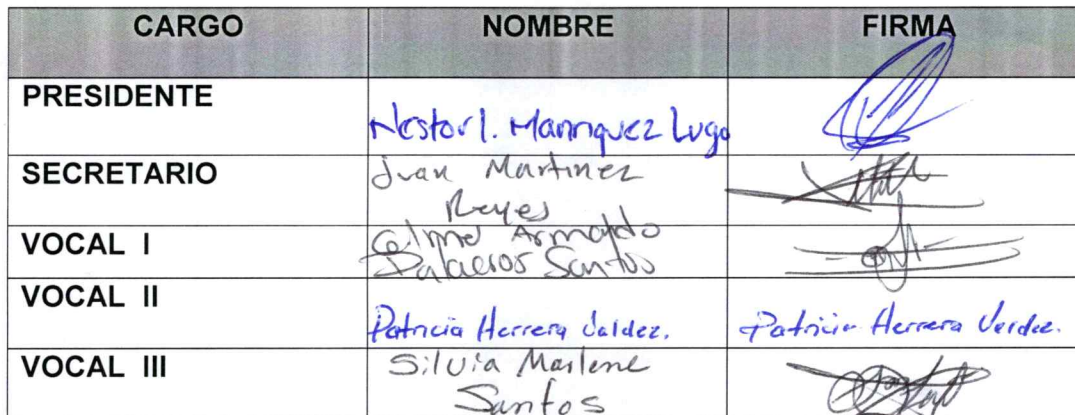 CARGO NOMBRE FIRMA
PRESIDENTE
Nestor I. Manriquez Lugo
SECRETARIO Juan Martinez
Reyes
VOCAL I Armando
Palacios Santos
VOCAL II
Patricia Herrera Valdez. Patricia Herrera Verdez.
VOCAL III Silvia Marlene
Santos